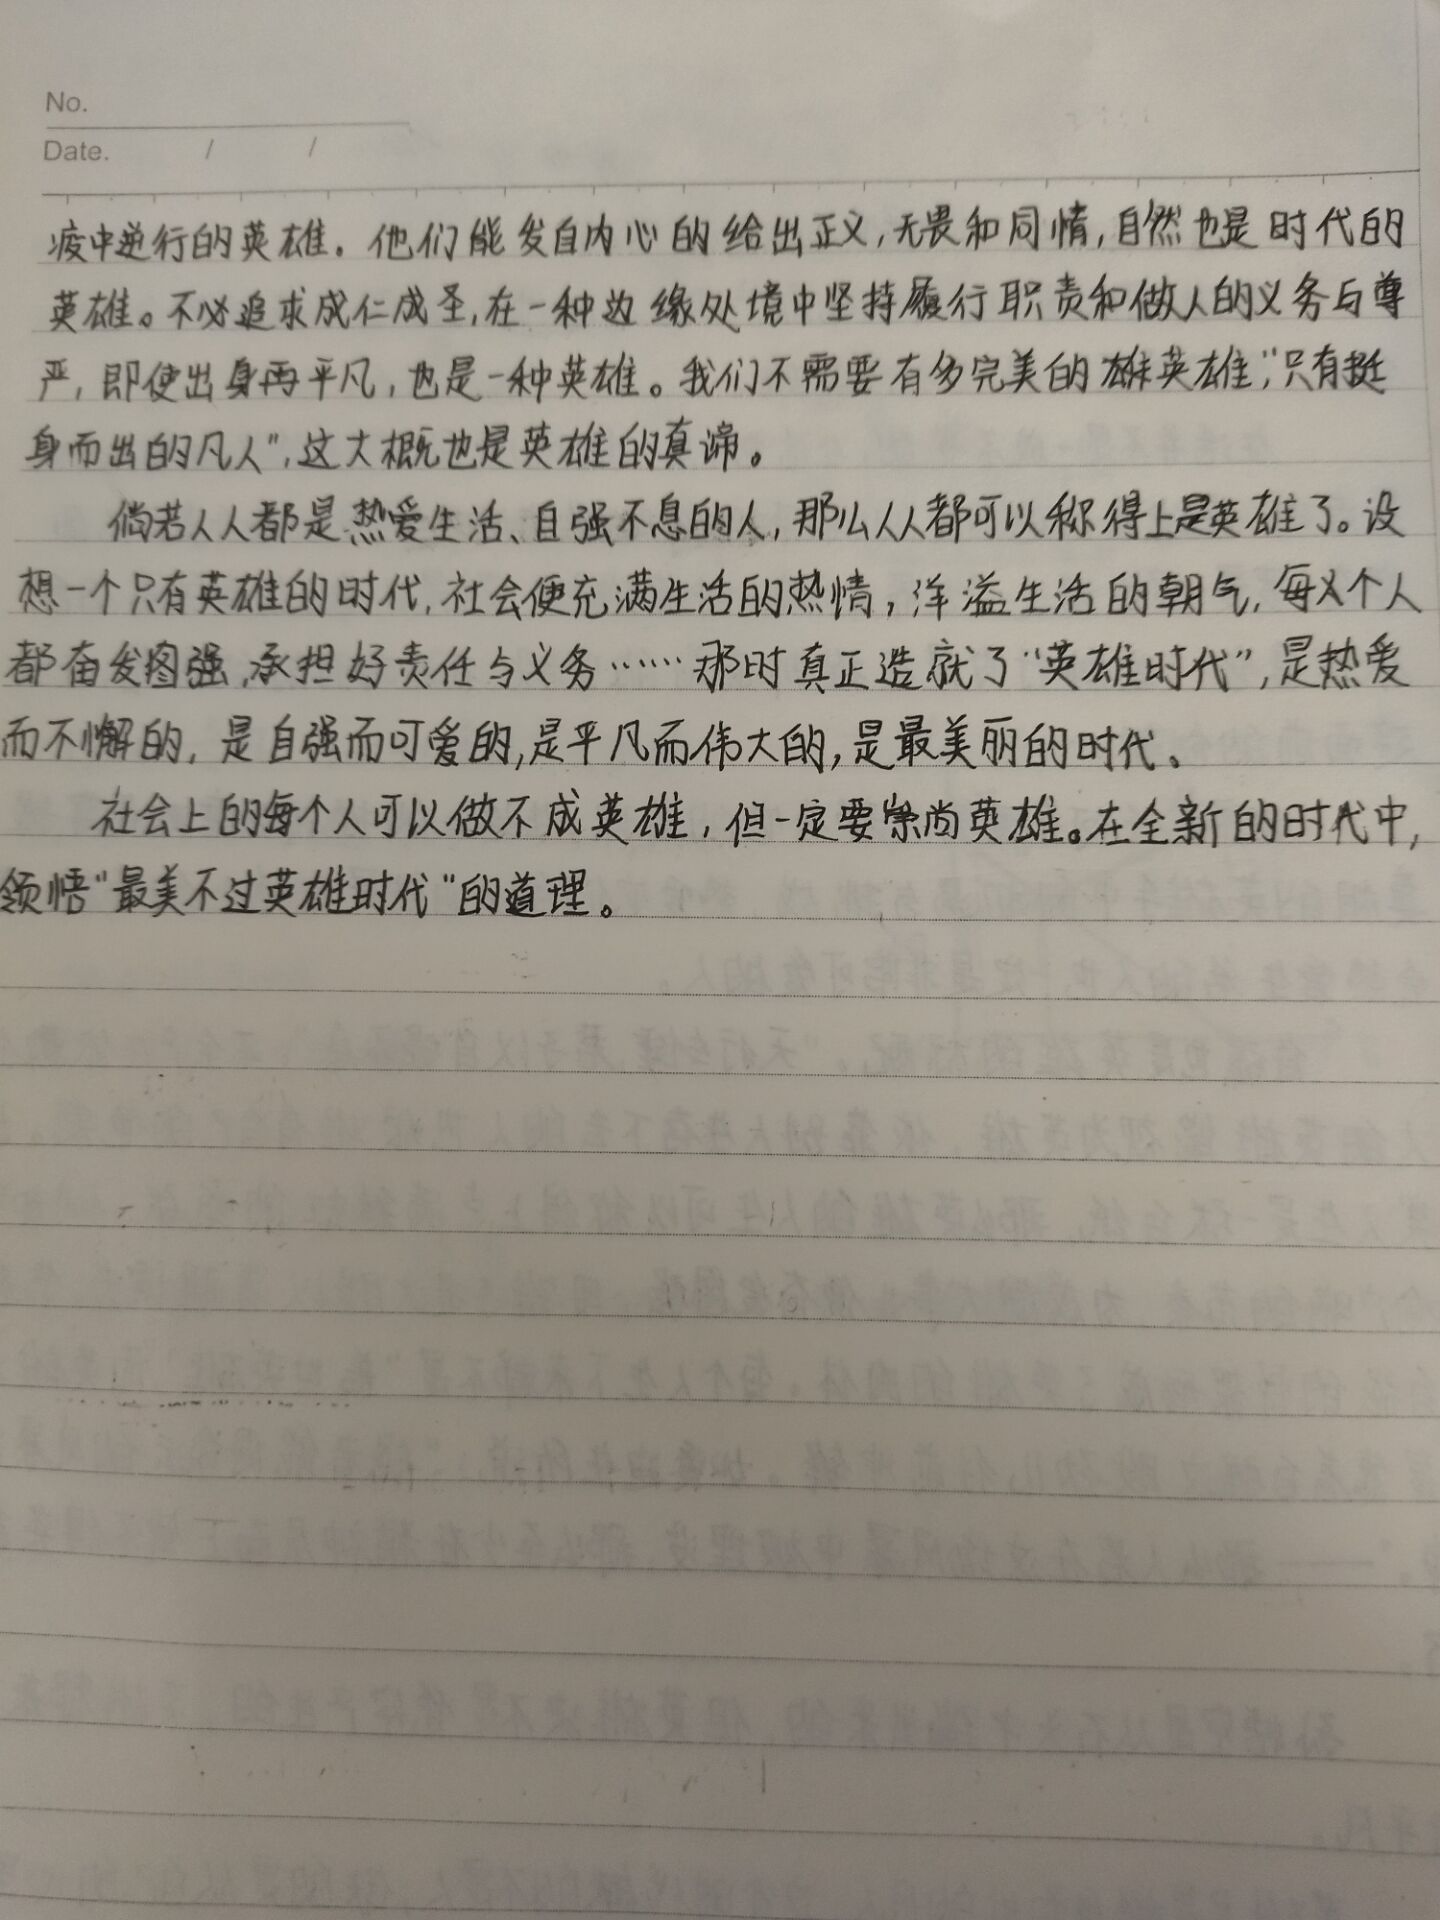 No.
Date. / /
疫中逆行的英雄。他们能发自内心的给出正义,无畏和同情,自然也是时代的
英雄。不必追求成仁成圣,在一种边缘处境中坚持履行职责和做人的义务与尊
严,即使出身再平凡,也是一种英雄。我们不需要有多完美的雄英雄,“只有挺
身而出的凡人”,这大概也是英雄的真谛。
倘若人人都是热爱生活、自强不息的人,那么人人都可以称得上是英雄了。设
想一个只有英雄的时代,社会便充满生活的热情,洋溢生活的朝气,每个人
都奋发图强,承担好责任与义务……那时真正造就了“英雄时代”,是热爱
而不懈的,是自强而可爱的,是平凡而伟大的,是最美丽的时代。
社会上的每个人可以做不成英雄,但一定要崇尚英雄。在全新的时代中,
领悟“最美不过英雄时代”的道理。